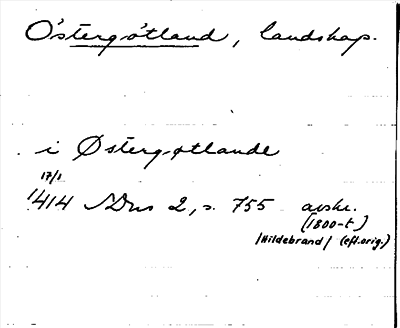 Östergötland, landskap.
i Østergøtlande
17/1
1414 SDns 2, s. 755 avskr.
(1800-t)
/Hildebrand/ (eft. orig.)